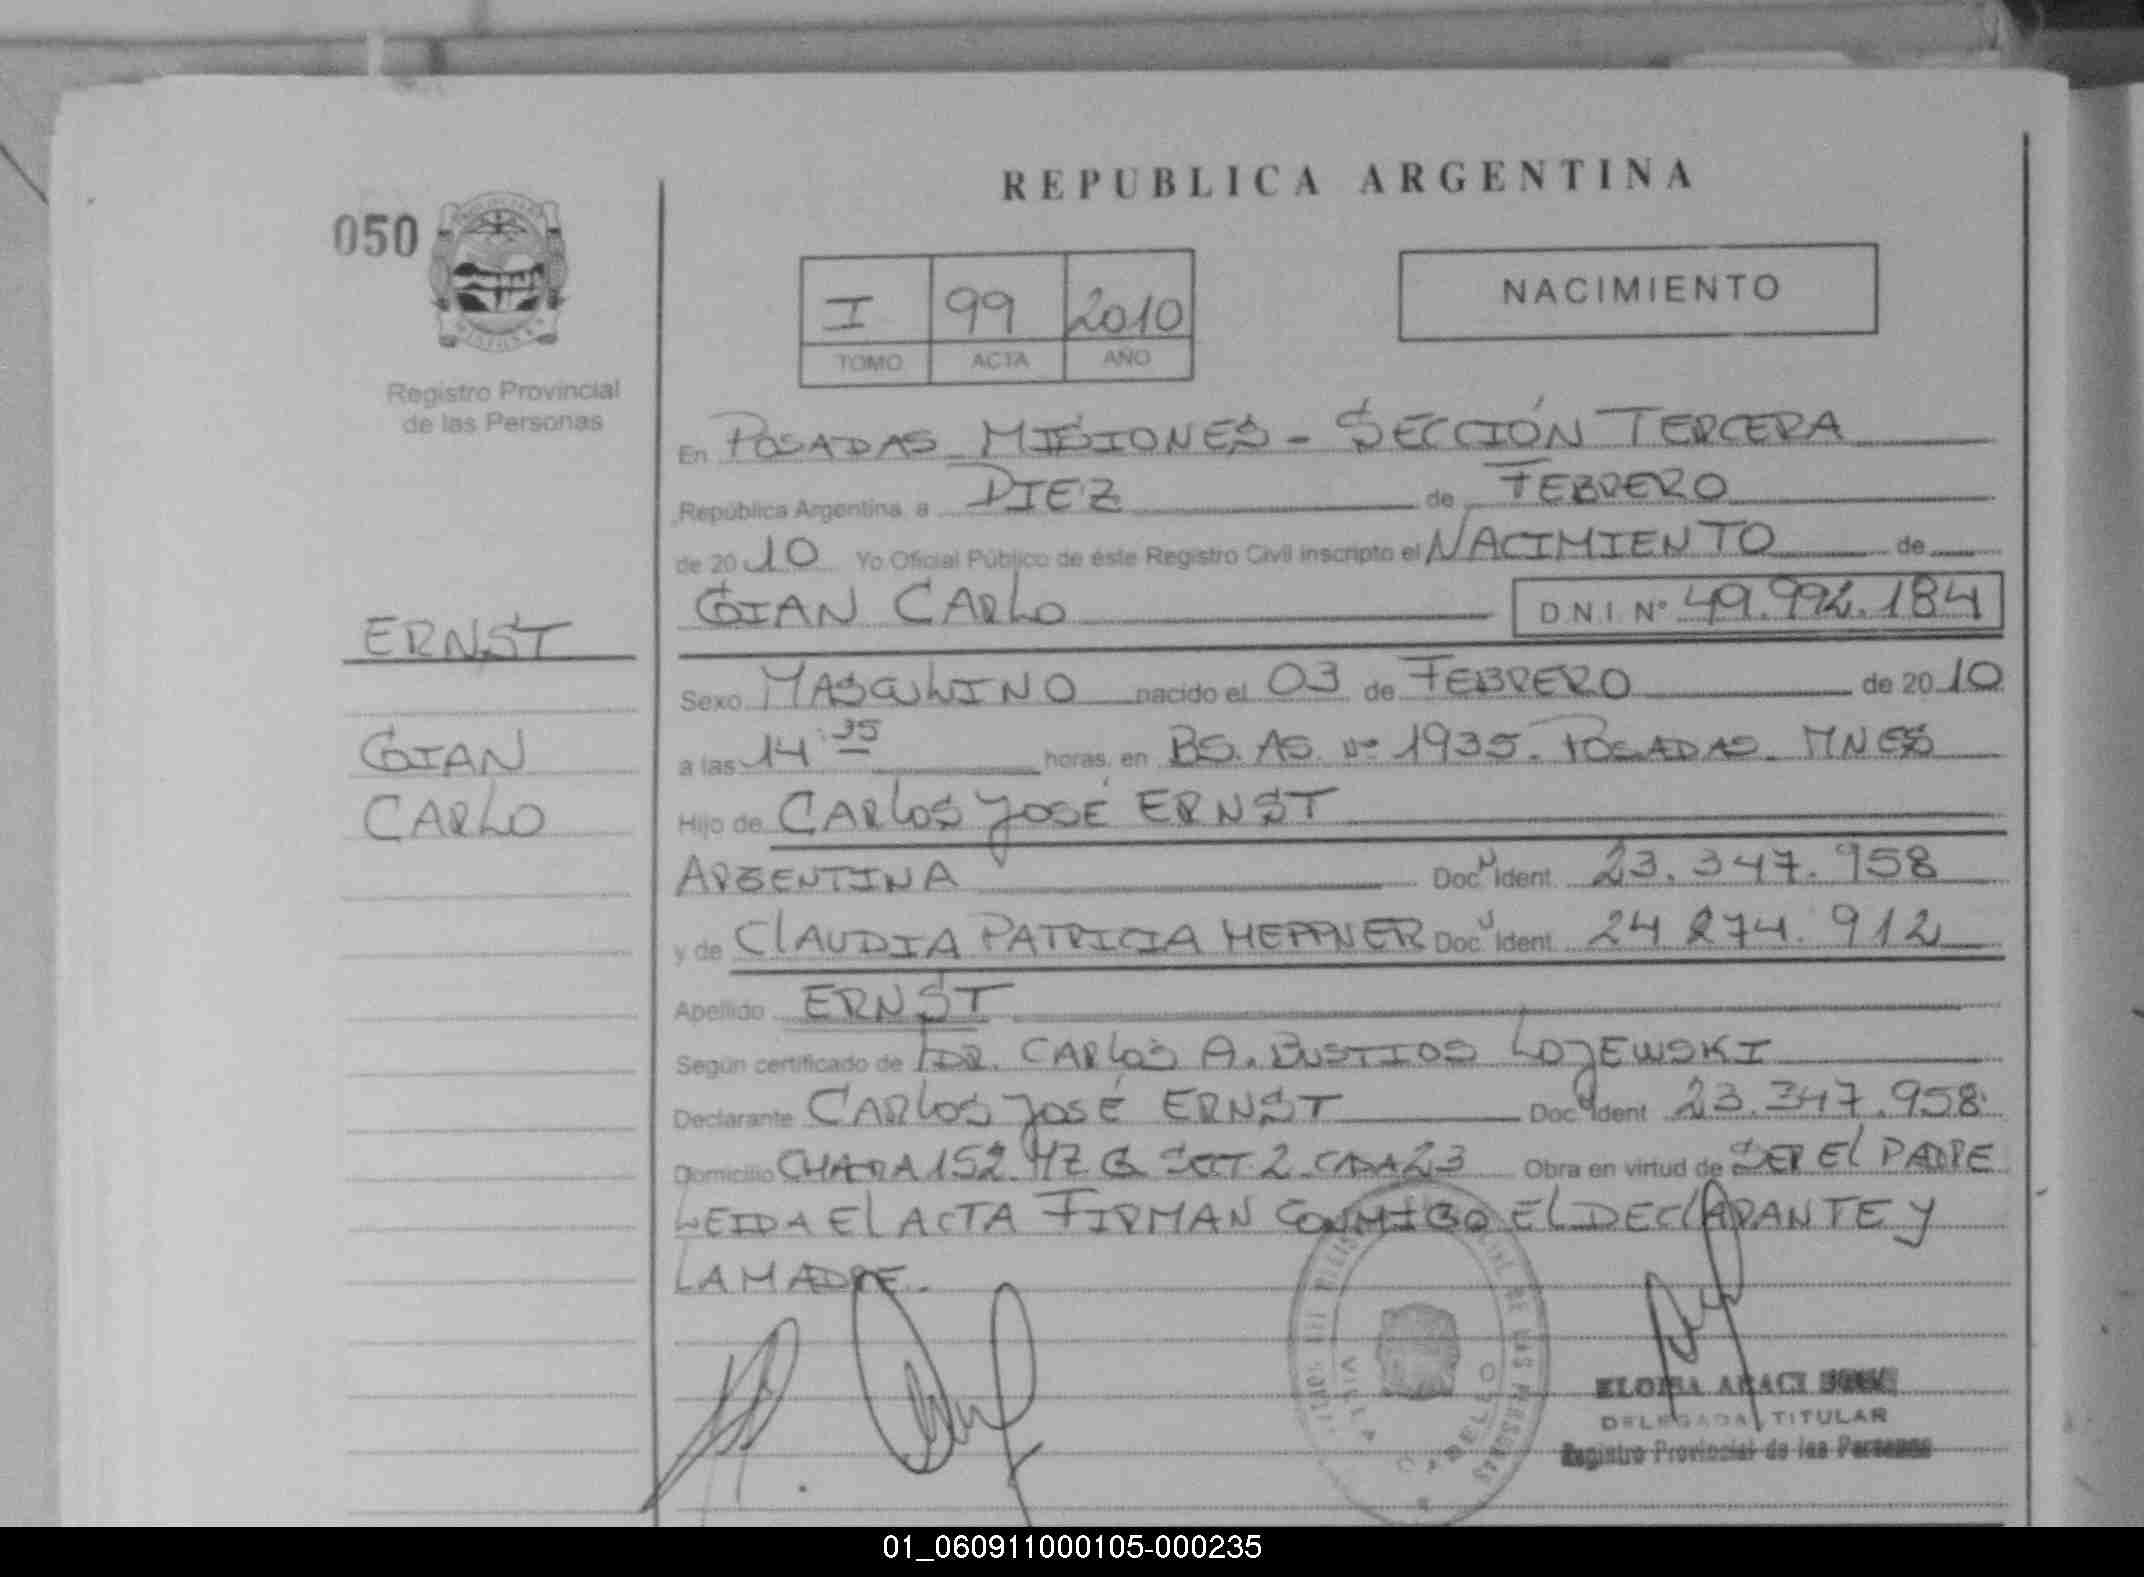 REPUBLICA ARGENTINA
050
I 99 2010
TOMO ACTA AÑO
NACIMIENTO
Registro Provincial
de las Personas
En POSADAS MISIONES - SECCIÓN TERCERA
República Argentina a DIEZ de FEBRERO
de 2010 Yo Oficial Público de éste Registro Civil inscripto el NACIMIENTO de
GIAN CARLO D.N.I. Nº 49.992.184
ERNST
GIAN
CARLO
Sexo MASCULINO nacido el 03 de FEBRERO de 2010
a las 14:35 horas, en BS. AS. Nº 1935. POSADAS. MNES
Hijo de CARLOS JOSÉ ERNST
ARGENTINA Doc. Ident. 23.347.958
y de CLAUDIA PATRICIA HEPPNER Doc. Ident. 24 274. 912
Apellido ERNST
Según certificado de DR. CARLOS A. BUSTIOS LOJEWSKI
Declarante CARLOS JOSÉ ERNST Doc. Ident 23.347.958
Domicilio CHACRA 152 MZ G SECT. 2 CASA 23 Obra en virtud de SER EL PADRE
LEIDA EL ACTA FIRMAN CONMIGO EL DECLARANTE Y
LA MADRE.
DELEGADA TITULAR
Registro Provincial de las Personas
01_060911000105-000235